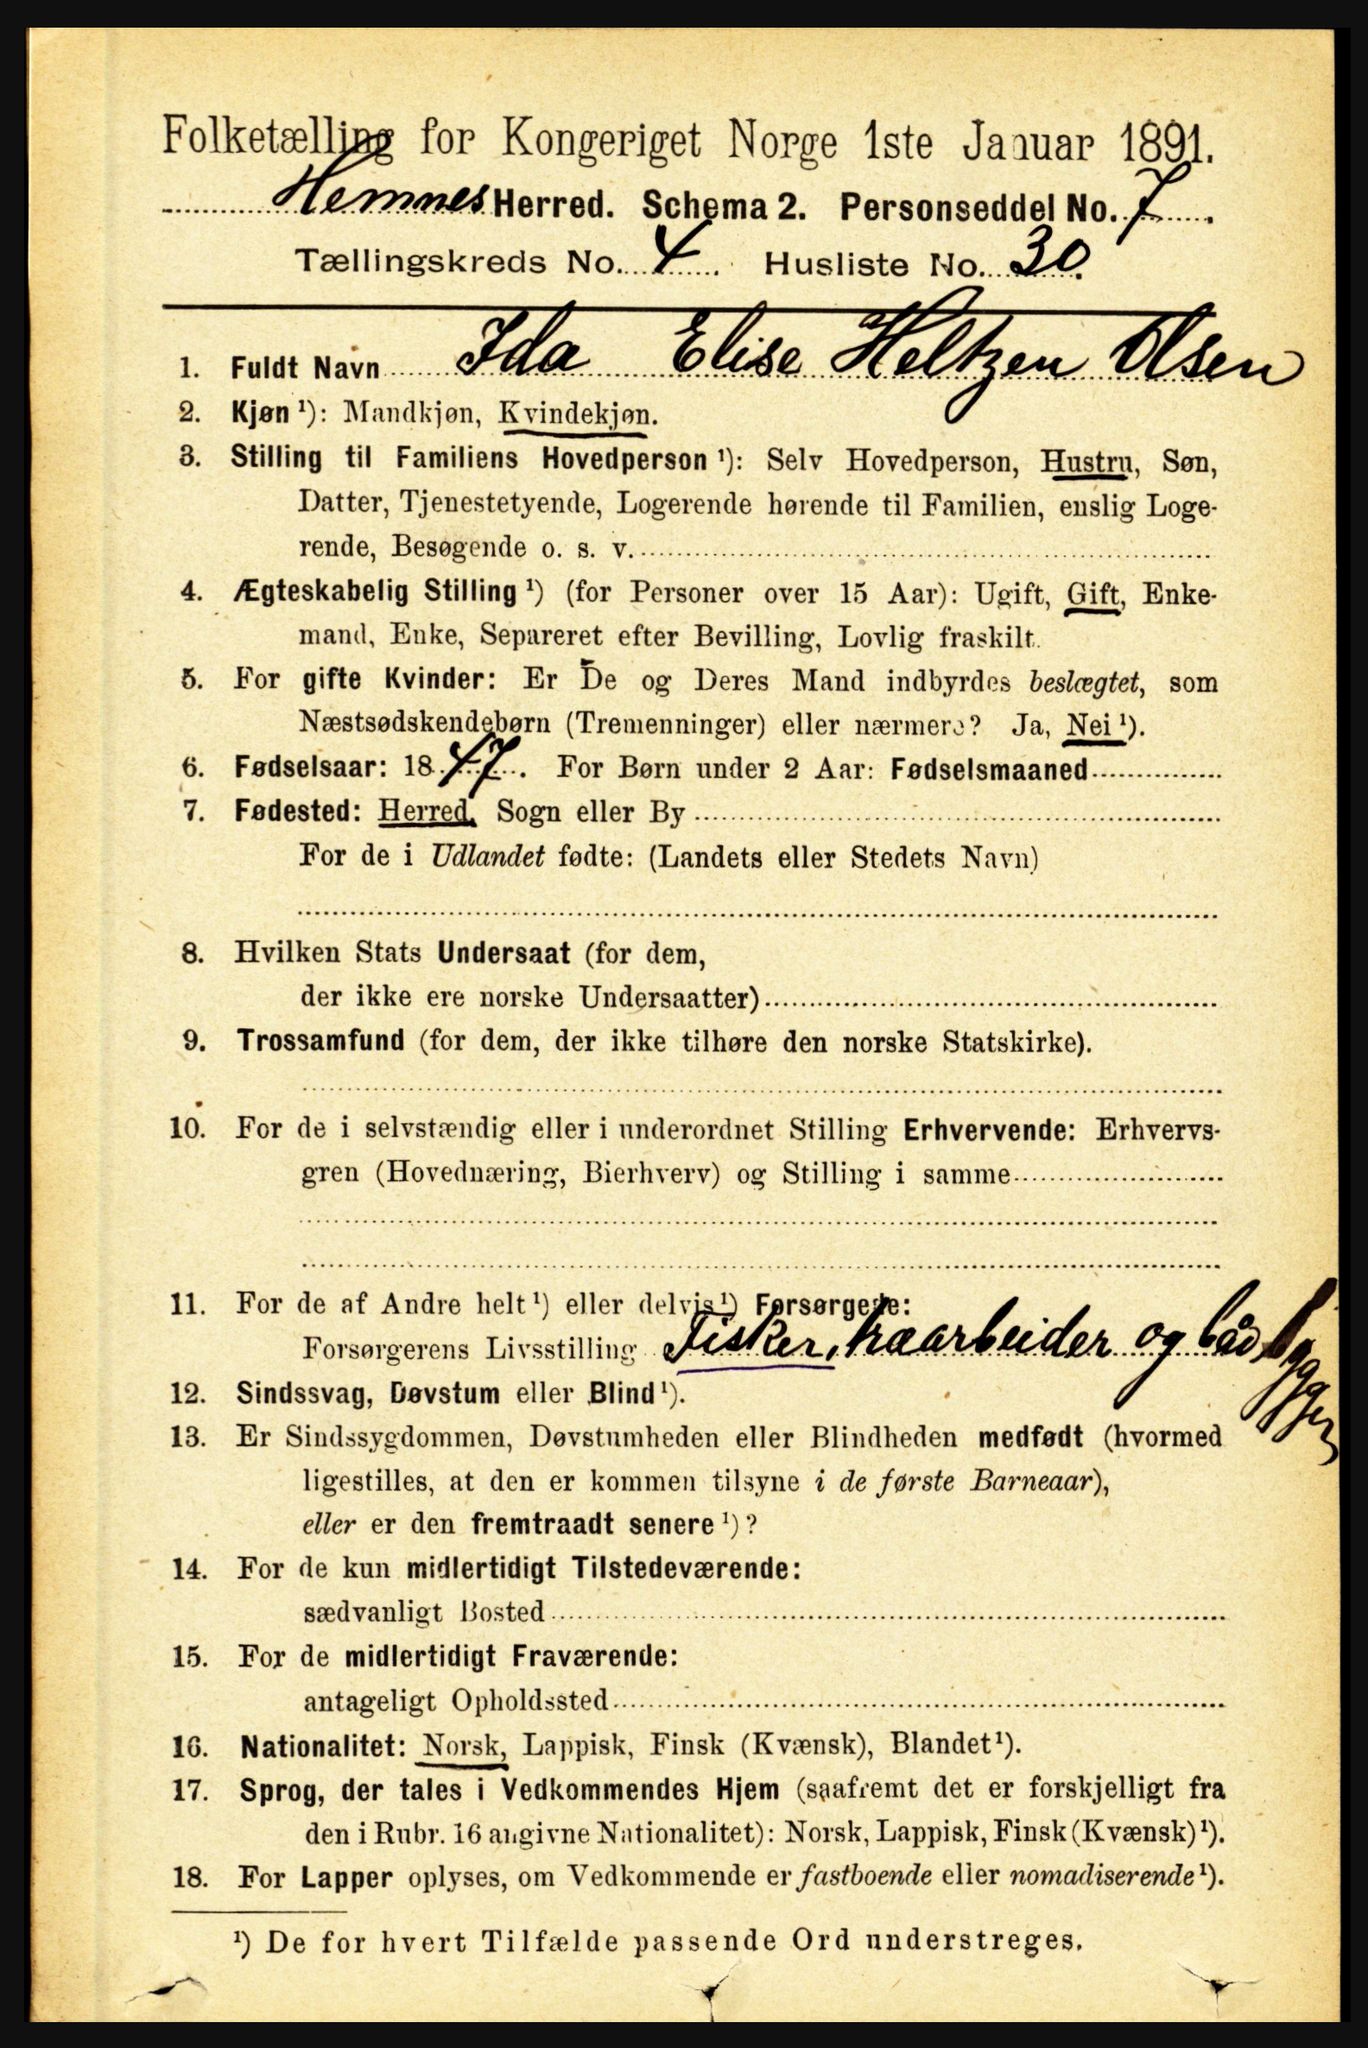 Folketælling for Kongeriget Norge 1ste Januar 1891.
Hemnes Herred. Schema 2. Personseddel No. 7.
Tællingskreds No. 4. Husliste No. 30.
1. Fuldt Navn Ida Elise Heltzen Olsen
2. Kjøn ¹): Mandkjøn, Kvindekjøn.
3. Stilling til Familiens Hovedperson ¹): Selv Hovedperson, Hustru, Søn,
Datter, Tjenestetyende, Logerende hørende til Familien, enslig Loge-
rende, Besøgende o. s. v.
4. Ægteskabelig Stilling ¹) (for Personer over 15 Aar): Ugift, Gift, Enke-
mand, Enke, Separeret efter Bevilling, Lovlig fraskilt.
5. For gifte Kvinder: Er De og Deres Mand indbyrdes beslægtet, som
Næstsødskendebørn (Tremenninger) eller nærmere? Ja, Nei ¹).
6. Fødselsaar: 1847. For Børn under 2 Aar: Fødselsmaaned
7. Fødested: Herred, Sogn eller By
For de i Udlandet fødte: (Landets eller Stedets Navn)
8. Hvilken Stats Undersaat (for dem,
der ikke ere norske Undersaatter)
9. Trossamfund (for dem, der ikke tilhøre den norske Statskirke).
10. For de i selvstændig eller i underordnet Stilling Erhvervende: Erhvervs-
gren (Hovednæring, Bierhverv) og Stilling i samme
11. For de af Andre helt ¹) eller delvis ¹) Forsørgede:
Forsørgerens Livsstilling Fisker, træarbeider og båd bygger
12. Sindssvag, Døvstum eller Blind ¹).
13. Er Sindssygdommen, Døvstumheden eller Blindheden medfødt (hvormed
ligestilles, at den er kommen tilsyne i de første Barneaar),
eller er den fremtraadt senere ¹)?
14. For de kun midlertidigt Tilstedeværende:
sædvanligt Bosted
15. For de midlertidigt Fraværende:
antageligt Opholdssted
16. Nationalitet: Norsk, Lappisk, Finsk (Kvænsk), Blandet ¹).
17. Sprog, der tales i Vedkommendes Hjem (saafremt det er forskjelligt fra
den i Rubr. 16 angivne Nationalitet): Norsk, Lappisk, Finsk (Kvænsk) ¹).
18. For Lapper oplyses, om Vedkommende er fastboende eller nomadiserende ¹).
¹) De for hvert Tilfælde passende Ord understreges.